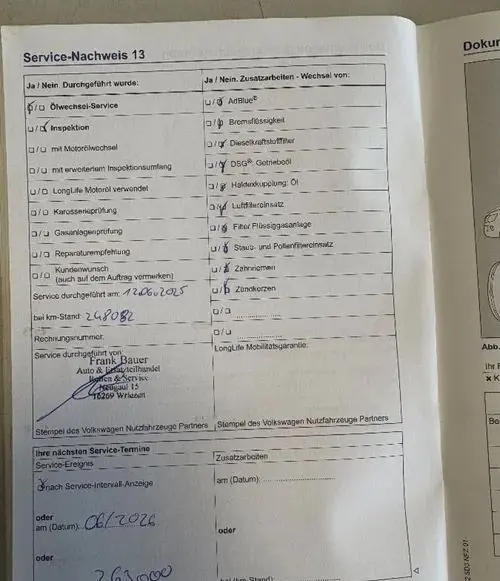 Service-Nachweis 13
Ja / Nein. Durchgeführt wurde:
Ölwechsel-Service
Inspektion
mit Motorölwechsel
mit erweitertem Inspektionsumfang
LongLife Motoröl verwendet
Karosserieprüfung
Gasanlagenprüfung
Reparaturempfehlung
Kundenwunsch
(auch auf dem Auftrag vermerken)
Service durchgeführt am: 12.06.2025
bei km-Stand: 248082
Rechnungsnummer:
Service durchgeführt von:
Frank Bauer
Auto & Ersatzteilhandel
Reifen & Service
Neugaul 15
16269 Wriezen
Stempel des Volkswagen Nutzfahrzeuge Partners
Ja / Nein. Zusatzarbeiten - Wechsel von:
AdBlue®
Bremsflüssigkeit
Dieselkraftstofffilter
DSG®: Getriebeöl
Haldexkupplung: Öl
Luftfiltereinsatz
Filter Flüssiggasanlage
Staub- und Pollenfiltereinsatz
Zahnriemen
Zündkerzen
LongLife Mobilitätsgarantie:
Stempel des Volkswagen Nutzfahrzeuge Partners
Ihre nächsten Service-Termine
Service-Ereignis
nach Service-Intervall-Anzeige
oder
am (Datum): 06/2026
oder
263000
Zusatzarbeiten
am (Datum):
oder
bei (km-Stand):
Dokum
Abb.
Ihr F